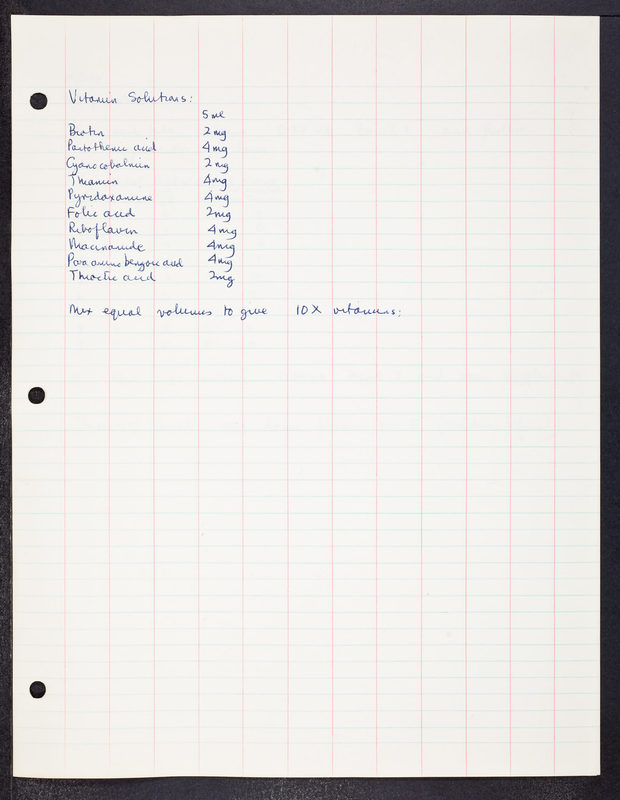 Vitamin Solutions:
5 ml
Biotin 2 mg
Pantothenic acid 4 mg
Cyanocobalmin 2 mg
Thiamin 4mg
Pyridoxamine 4mg
Folic acid 2mg
Riboflavin 4mg
Niacinamide 4mg
Para amino benzoic acid 4mg
Thioctic acid 2mg
Mix equal volumes to give 10X vitamins: